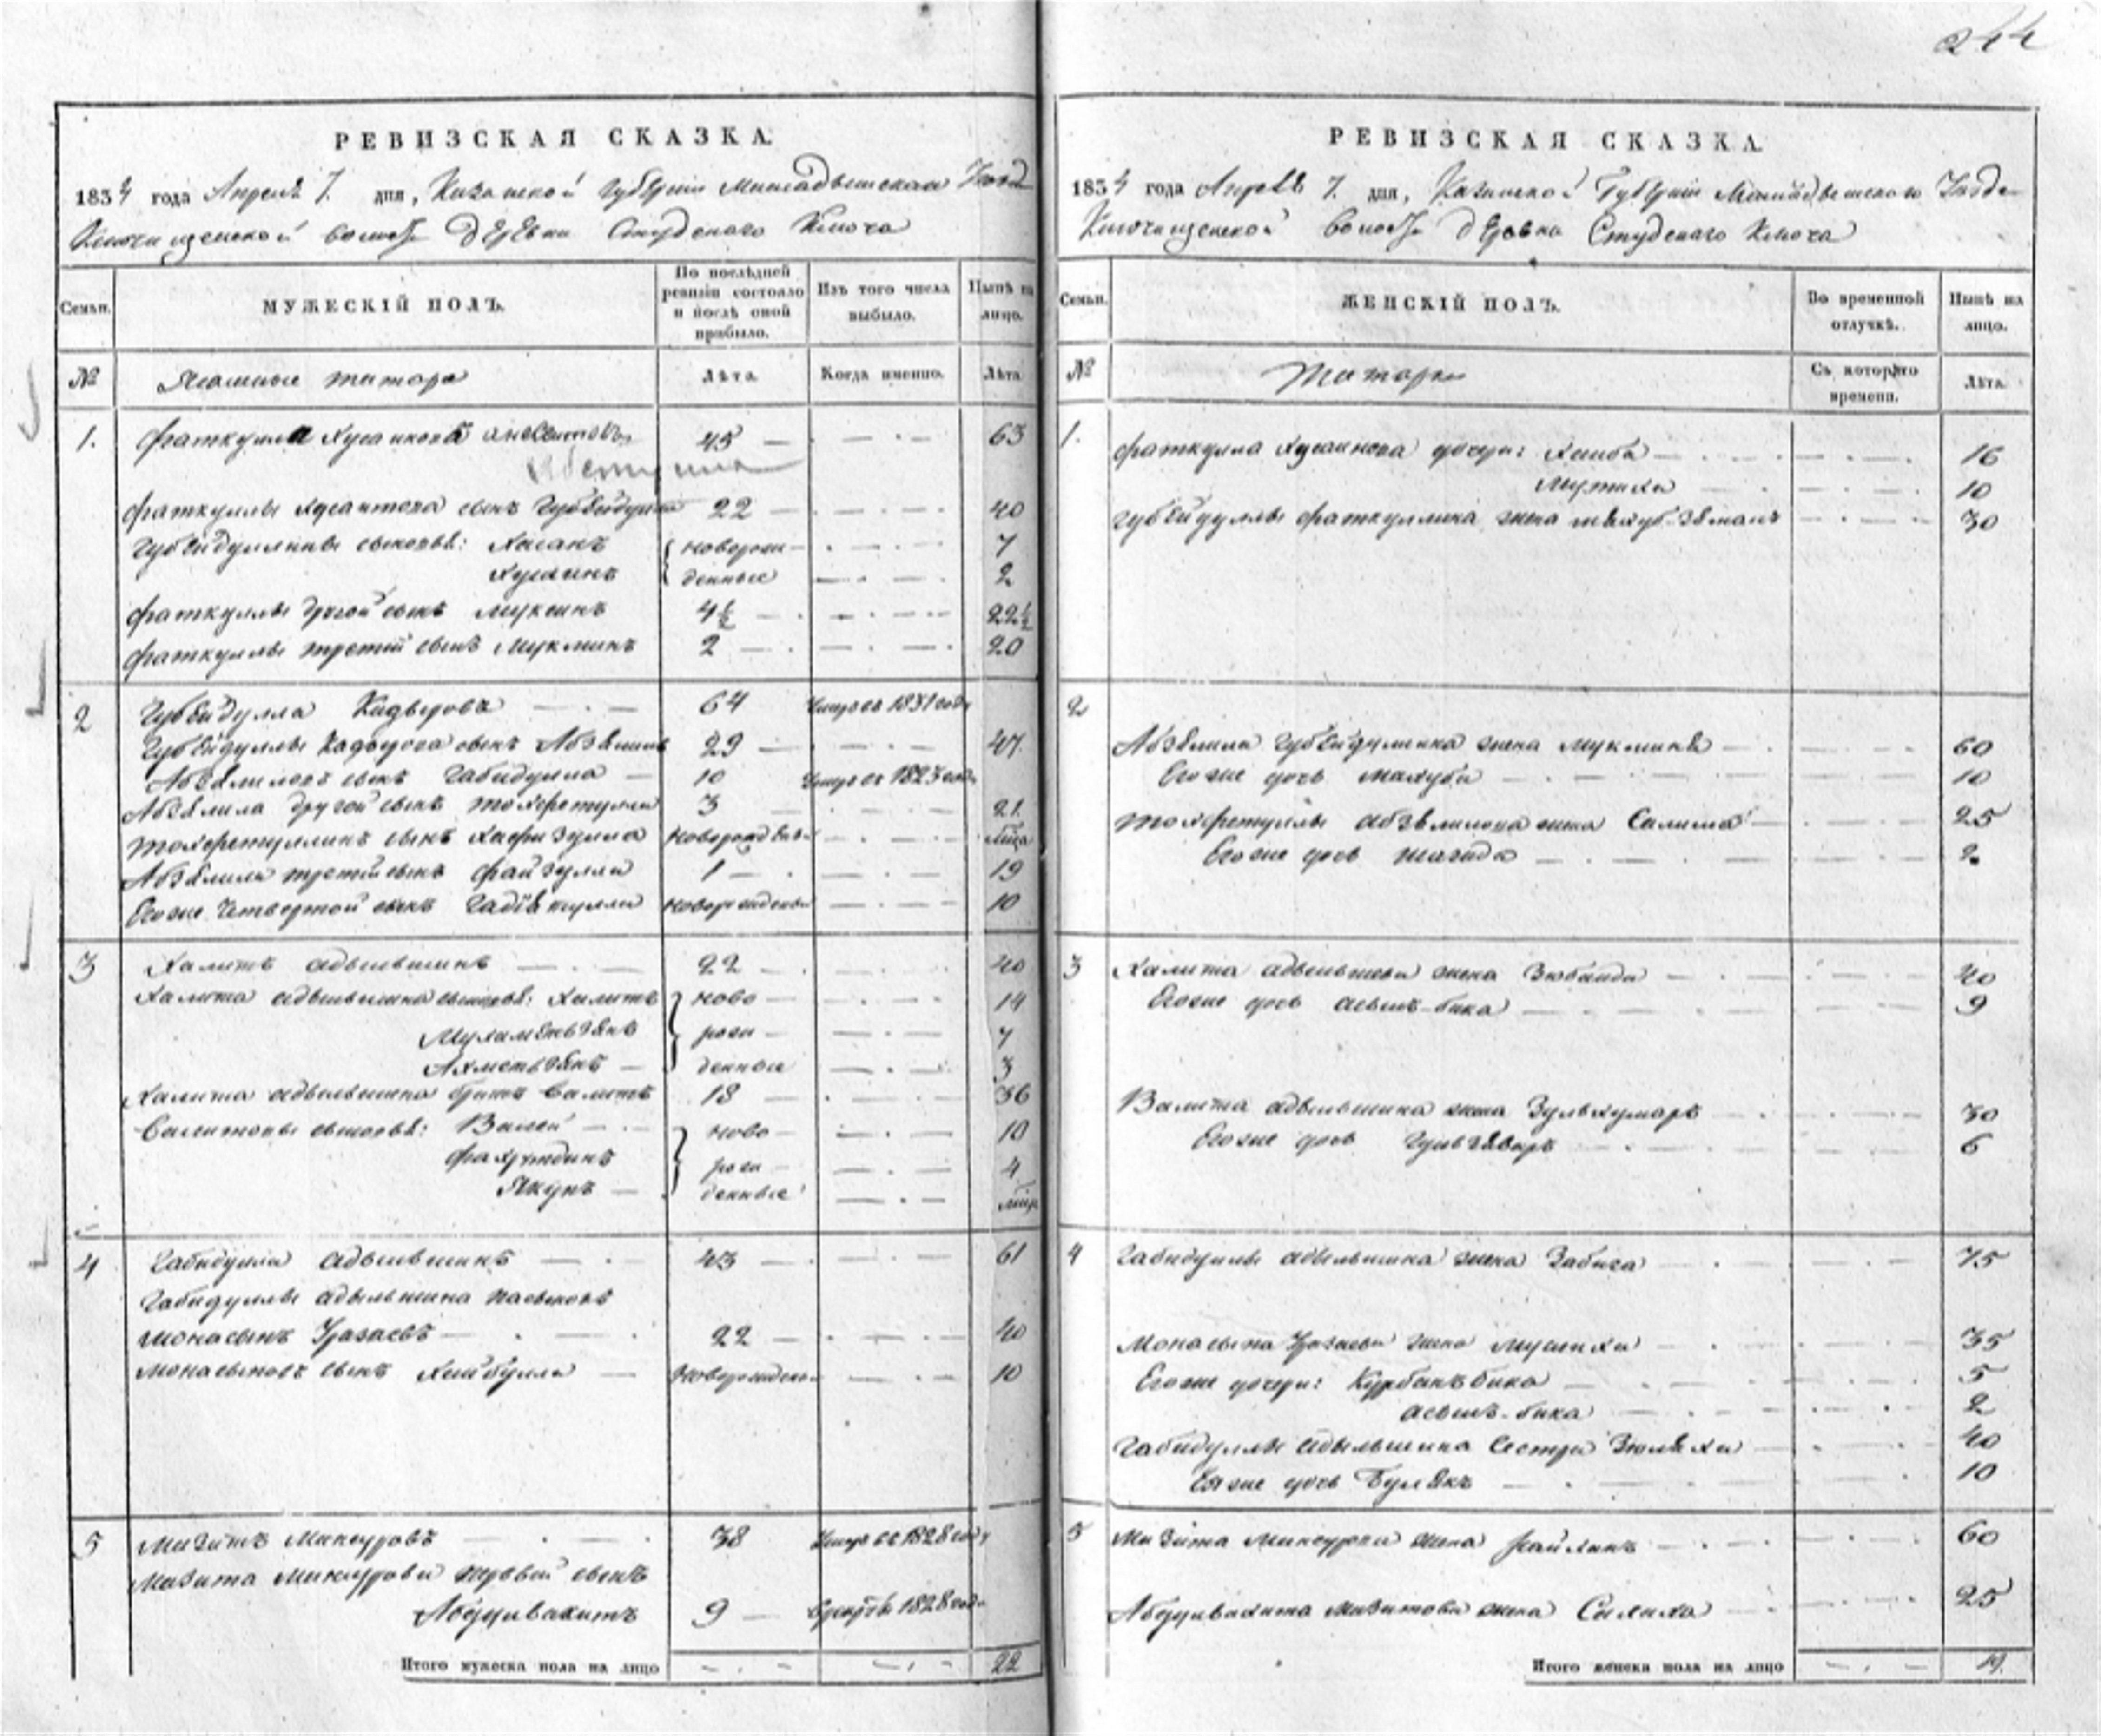 244
РЕВИЗСКАЯ СКАЗКА.
1834 года Апреля 7. дня, Казанской Губернии Мамадышскаго Уезда
Ключищенской волости деревни Студенаго Ключа
Семьи. МУЖЕСКІЙ ПОЛЪ. По послѣдней ревизіи состояло и послѣ оной прибыло. Изъ того числа выбыло. Нынѣ на лицо.
№ Ясашные татара Лѣта. Когда именно. Лѣта.
1. Фаткулла Хусаиновъ 45 — 63
Фаткуллы Хусаинова сынъ Губейдулла 22 — 40
Губейдуллины сыновья: Хасанъ новорож- 7
Хусаинъ денные 2
Фаткуллы другой сынъ Муксинъ 4½ — 22½
Фаткуллы третій сынъ Мукминъ 2 — 20
2 Губейдулла Кадыровъ 64 1831 году
Губейдуллы Кадырова сынъ Абзялилъ 29 — 47.
Абзялиловъ сынъ Габидулла — 10 1823 году
Абзялила другой сынъ Тохфетулла 3 21.
Тохфетуллинъ сынъ Хафизулла новорожден
Абзялила третій сынъ Файзулла 1 — 19
Его же четвертой сынъ новорожденны 10
3 Халитъ Адыльшинъ 22 — 40
Халита Адыльшина сыновья: ново 14
Мухаметьзянъ рож 7
Ахметьзянъ — денные 3
Халита Адыльшина братъ Валитъ 18 36
Валитовы сыновья: Валей ново 10
Фахрутдинъ рож 4
Якупъ — денные
4 Габидулла Адыльшинъ 43 — 61
Габидуллы Адыльшина пасынокъ
Монасыпъ Уразаевъ — 22 — 40
Монасыповъ сынъ Хайбулла — Новорожден 10
5 Мазитъ Мансуровъ 38 1828 году
Мазита Мансурова первой сынъ
Абдулвахитъ 9 — 1828 году
Итого мужеска пола на лицо 22
РЕВИЗСКАЯ СКАЗКА.
1834 года Апреля 7. дня, Казанской Губерніи Мамадышскаго Уезда
Ключищенской волости деревни Студенаго Ключа
Семьи. ЖЕНСКІЙ ПОЛЪ. Во временной отлучкѣ. Нынѣ на лицо.
№ Татарки Съ котораго времени. Лѣта.
1. Фаткулла Хусаинова дочери: 16
10
Губейдуллы Фаткуллина жена 30
2
Абзялила Губейдуллина жена Мукмина 60
Его же дочь Махуба 10
Тохфетуллы Абзялилова жена Салима 25
Его же дочь Шагида 2.
3 Халита Адыльшина жена Зюбаида 40
Его же дочь 9
Валита Адыльшина жена Зульхумаръ 30
Его же дочь 6
4 Габидуллы Адыльшина жена Забига 75
Монасыпа Уразаева жена 35
Его же дочери: Курбанъ бика 5
2
Габидуллы Адыльшина сестра 40
Ея же дочь Булякъ 10
5 Мазита Мансурова жена 60
Абдулвахита Мазитова жена Салиха 25
Итого женска пола на лицо 19.